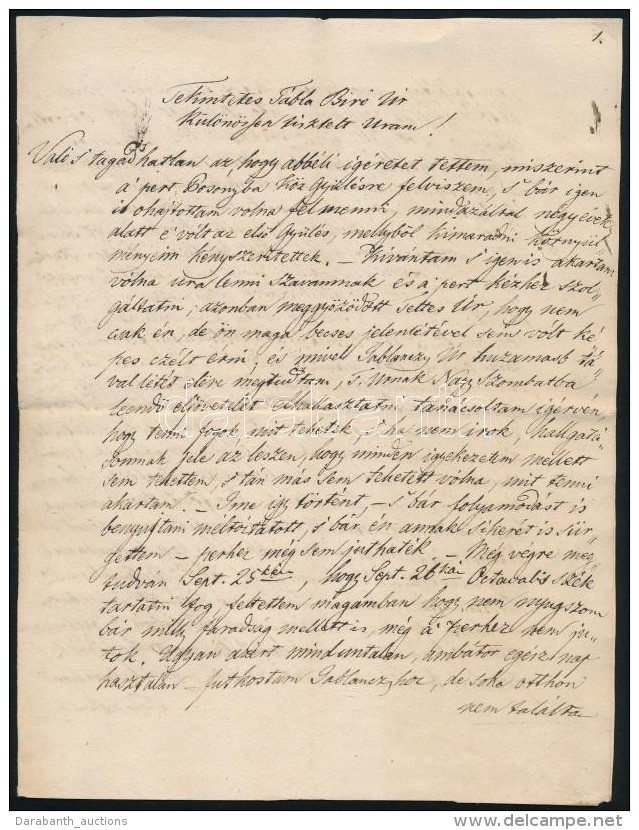 1.
Tekintetes Tabla Biró Úr
Különössen tisztelt Uram!
Való s tagadhatlan az, hogy abbéli igéretet tettem, miszerint
á pert Posonyba Köz Gyülésre felviszem, s bár igen
is ohajtottam volna felmenni, mindazáltal négy évek
alatt é vólt az első Gyülés, mellyből kimaradni környül
ményeim kényszeritettek. – Kivántam s igenis akartam
vólna ura lenni szavamnak és á pert kézhez szol„
gáltatni; azonban meggyőződött Úr, hogy nem
csak én, de ön maga becses jelenlétével sem vólt ké
pes czélt érni; és mivel Jablanczy Úr huzamosb tá„
val létét előre megtudtam, T. Urnak Nagy Szombatba
leendő eljövetelét elhalasztatni tanácsoltam igérvén
hogy tenni fogok, mit tehetek, s ha nem irok, hallgatá
somnak jele az leszen, hogy minden igyekezetem mellett
sem tehettem, s tán más sem tehetett vólna, mit tenni
akartam. – Ime igy történt, – s bár folyamodást is
benyujtani méltóztatott, s bár én annak sikerét is sür
gettem – perhez még sem juthaték. – Még végre meg
tudván Sept. 25kén, hogy Sept. 26kán Octavalis Szék
tartatni fog, feltettem magamban hogy nem nyugszom
bár milly fáradság mellett is, még á perhez nem ju„
tok. Ugyan azért minduntalan, ámbátor egész nap
hasztalan – futkostam Jablanczyhoz, de soha otthon
nem találta
darabanth
Darabanth_auctions
delcampe.net